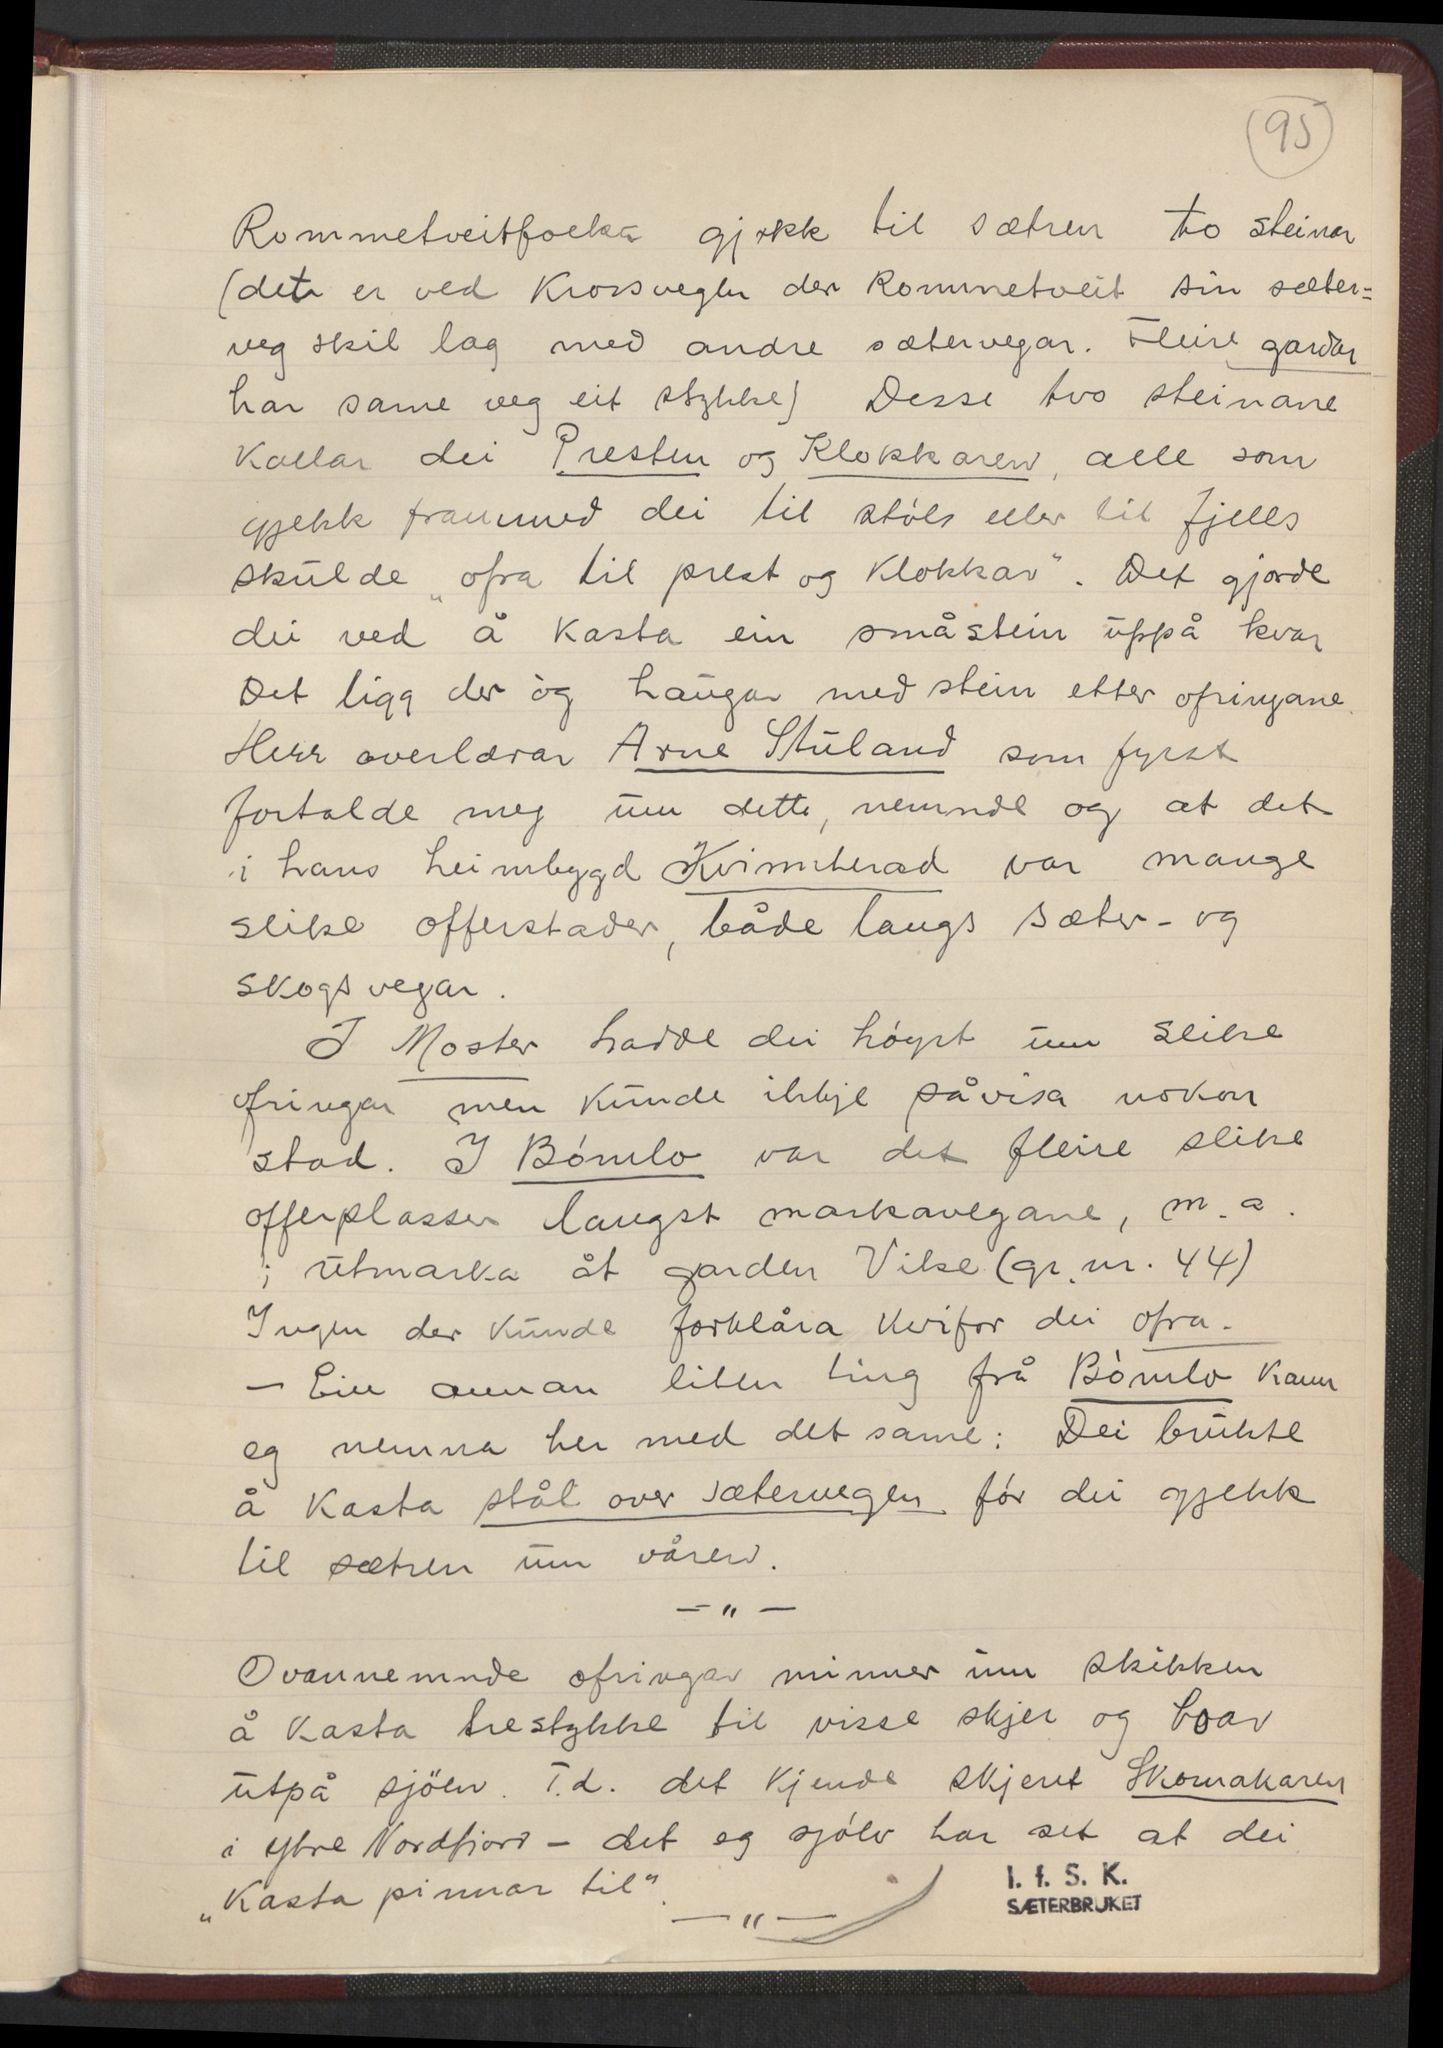 95
Rommetveitfolka gjekk til sætren to steinar
(det er ved Krossvegen der Rommetveit sin sæter=
veg skil lag med andre sætervegar. Fleire gardar
har same veg eit stykke) Desse tvo steinane
kallar dei Presten og Klokkaren, alle som
gjekk frammed dei til støls eller til fjells
skulde „ofra til prest og klokkar". Det gjorde
dei ved å kasta ein småstein uppå kvar
Det ligg der òg haugar med stein etter ofringane.
Herr overlærar Arne Stuland som fyrst
fortalde meg um dette, nemnde og at det
i hans heimbygd Kvinnherad var mange
slike offerstader, både langs sæter- og
skogsvegar.
I Moster hadde dei høyrt um slike
ofringar men kunde ikkje påvisa nokon
stad. I Bømlo var det fleire slike
offerplasser langst markavegane, m.a.
i utmarka åt garden Vike (gr.nr. 44)
Ingen der kunde forklåra kvifor dei ofra.
– Ein annan liten ting frå Bømlo kann
eg nemna her med det same: Dei brukte
å kasta stål over sætervegen før dei gjekk
til sætren um våren.
– " –
Ovannemnde ofringar minner um skikken
å kasta trestykke til visse skjer og boar
utpå sjöen. T.d. det kjende skjeret Skomakaren
i ytre Nordfjord – det eg sjølv har set at dei
„kasta pinnar til".
– " –
I. f. S. K.
SÆTERBRUKET